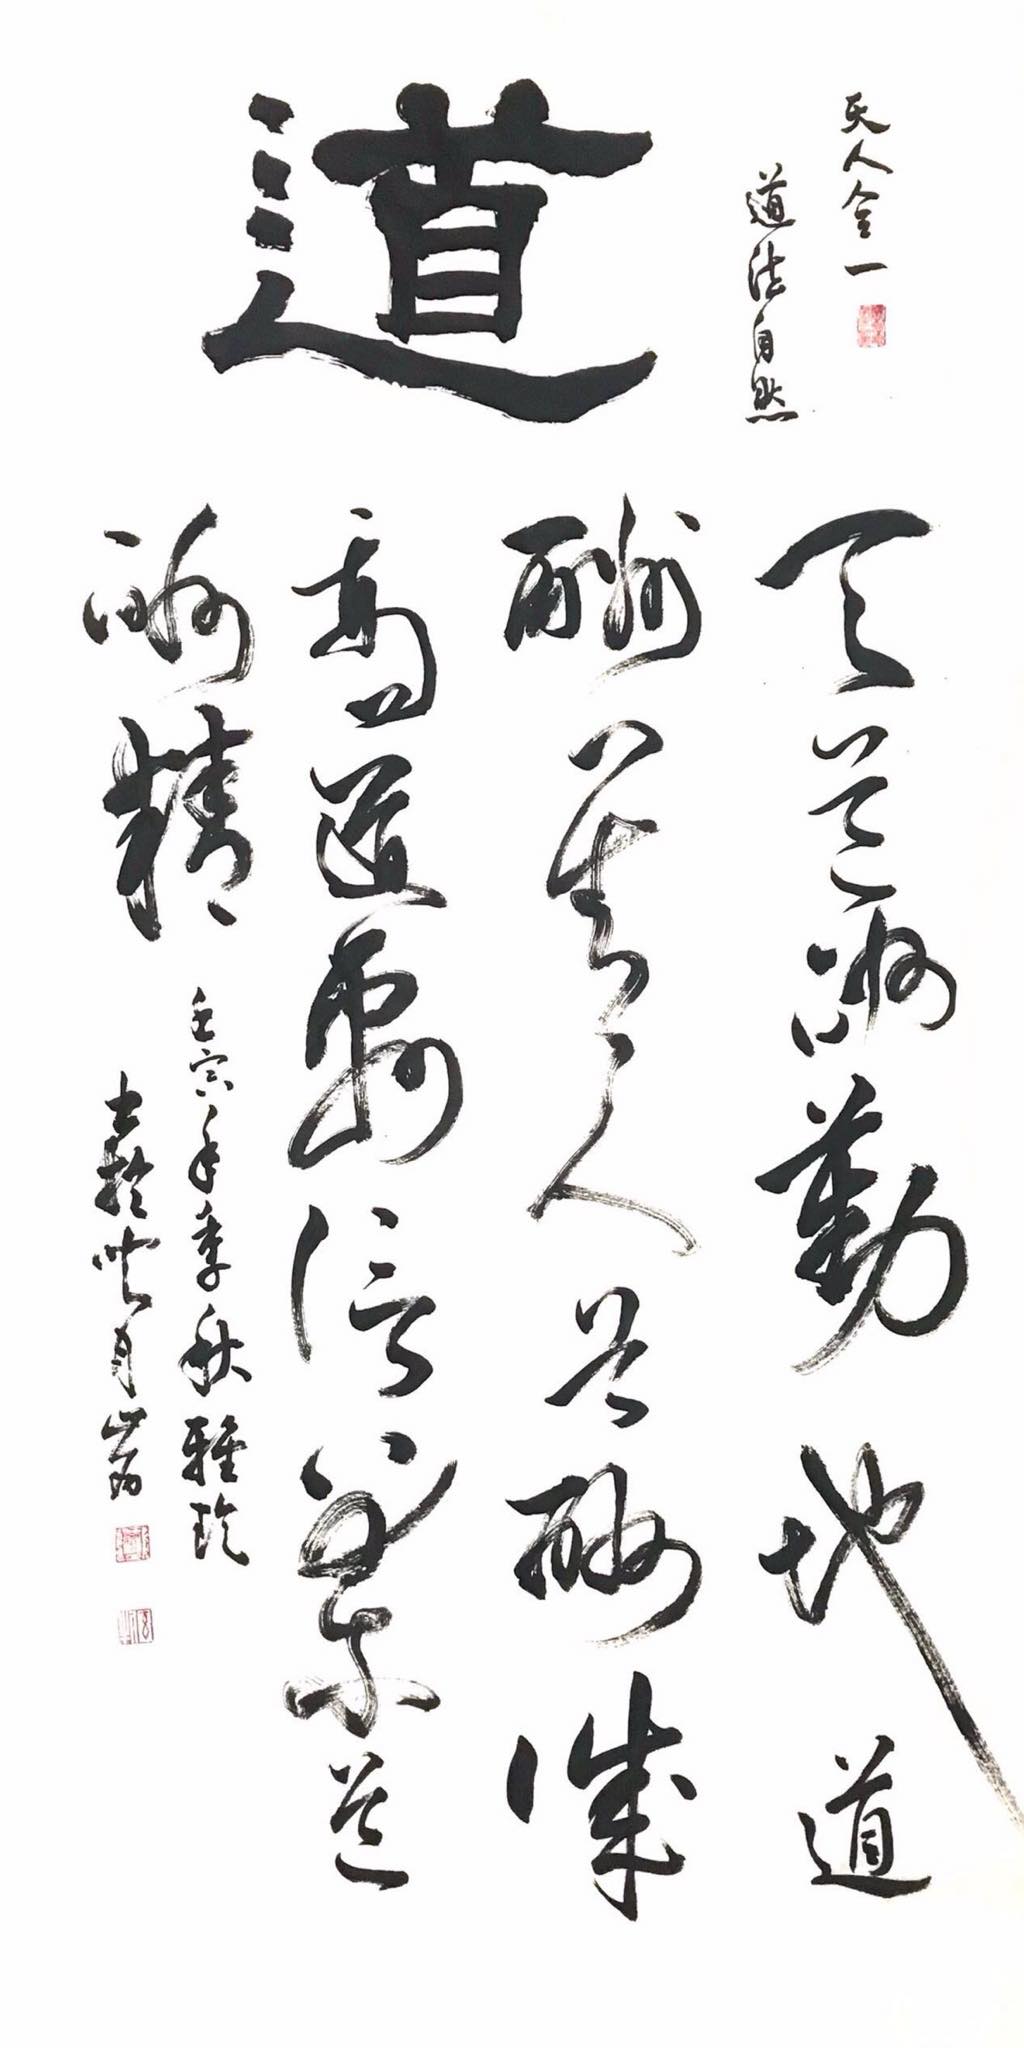 天人合一
道法自然
道
天道酬勤地道
酬善人道酬誠
商道酬信業道
酬精
壬寅年季秋雅
書於